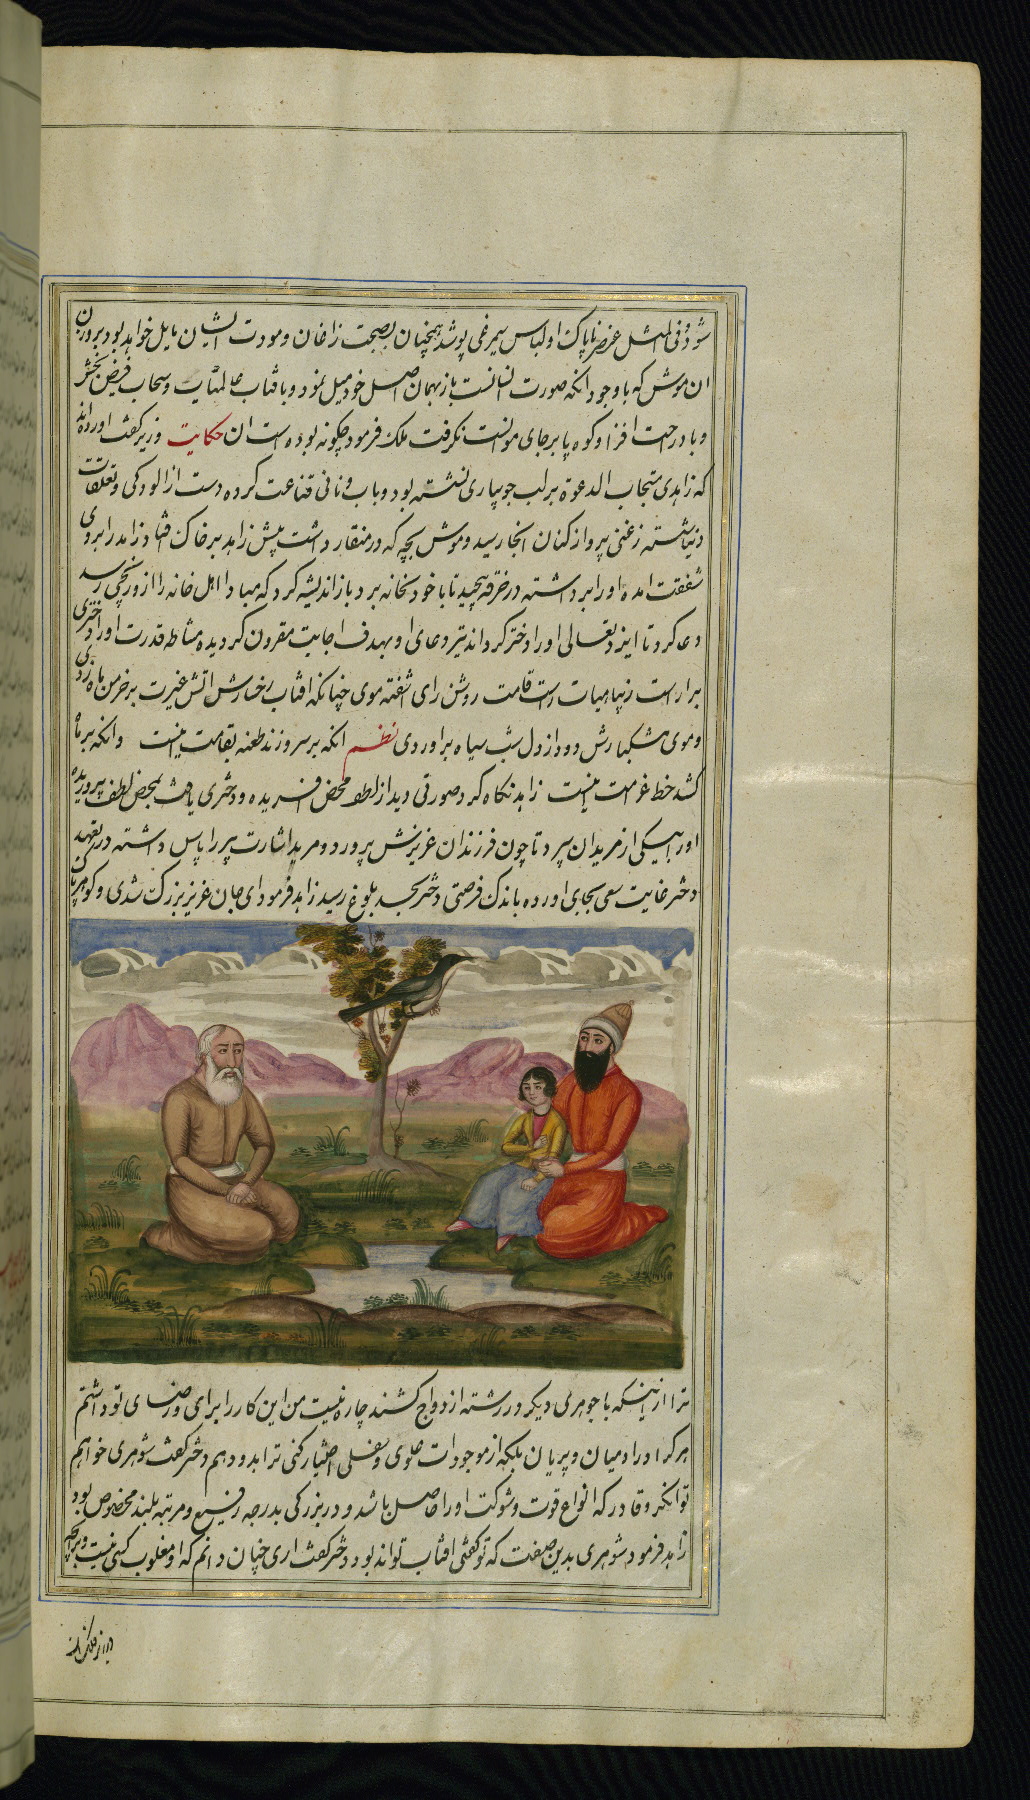 شود و فی المثل عنصر ناپاک او لباس سیمرغی پوشد همچنان بصحبت زاغان و مودت ایشان مایل خواهد بود بروزن
ان موش که با وجود انکه صورت انسانیت باز بهمان اصل خود میل نمود و با فتاب عالمتاب و سحاب فیض بخش
و باد راحت افزا و کوه پا برجای موانست نکرفت ملک فرمود چکونه بوده است ان حکایت وزیر کفت اورده اند
که زاهدی مستجاب الدعوة بر لب جویباری نشسته بود و باب و نانی قناعت کرده دست از الودکی و تعلقات
دنیا شسته زغنی پرواز کنان انجا رسید و موش بچه که در منقار داشت پیش زاهد بر خاک افتاد زاهد را بروی
شفقت امده او را برداشته در خرقه پیچید تا با خود بخانه برد باز اندیشه کرد که مبادا اهل خانه را ازو رنجی رسد
دعا کرد تا ایزد تعالی او را دختر کرداند تیر دعای او بهدف اجابت مقرون کردیده مشاطه قدرت او را دختری
براراست زیبا هیات راست قامت روشن رای اشفته موی چنانکه افتاب رخسارش اتش غیرت بر خرمن ماه زدی
و موی مشکبارش دود از دل شب سیاه براوردی نظم انکه بر سرو زند طعنه بقامت اینست وانکه بر ماه
کشد خط غرامت اینست زاهد نکاه کرد صورتی دید از لطف محض افریده و دختری یافت بمحض لطف پروریده
او را بیکی از مریدان سپرد تا چون فرزندان عزیزش پرورد و مرید اشارت پیر را پاس داشته در تعهد
دختر غایت سعی بجای اورده باندک فرصتی دختر بحد بلوغ رسید زاهد فرمود ای جان عزیز بزرک شدی و کوهر پاک
ترا از اینکه با جوهری دیکر در رشته ازدواج کشند چاره نیست من این کار را برای و رضای تو داشتم
هر کرا از ادمیان و پریان بلکه از موجودات علوی و سفلی اختیار کنی ترا بدو دهم دختر کفت شوهری خواهم
توانکر و قادر که انواع قوت و شوکت او را حاصل باشد و در بزرکی بدرجه رفیع و مرتبه بلند مخصوص بود
زاهد فرمود شوهری بدین صفت که تو کفتی افتاب تواند بود دختر کفت اری چنان دانم که او مغلوب کسی نیست